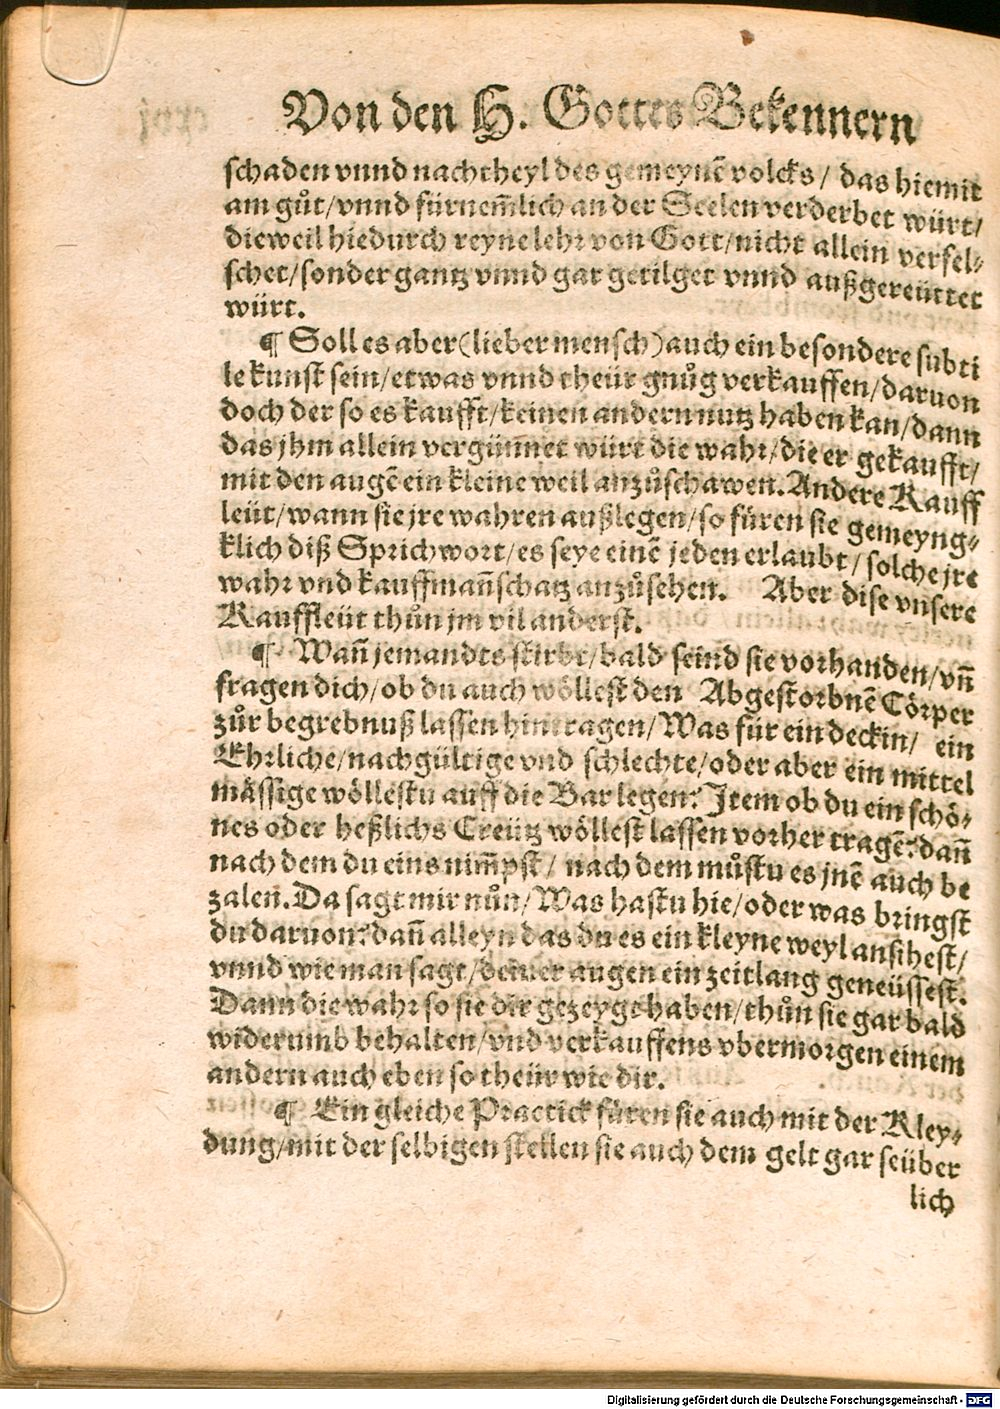 Von den H. Gottes Bekennern
schaden vnnd nachtheyl des gemeynẽ volcks / das hiemit
am gůt/vnnd fürnem̃lich an der Seelen verderbet würt/
dieweil hiedurch reyne lehr von Gott/nicht allein verfel⸗
schet/sonder gantz vnnd gar getilget vnnd außgereüttet
würt.
¶ Soll es aber (lieber mensch) auch ein besondere subti
le kunst sein/etwas vnnd theür gnůg verkauffen/daruon
doch der so es kaufft/keinen andern nutz haben kan/dann
das jhm allein vergün̄net würt die wahr/die er gekaufft/
mit den augẽ ein kleine weil anzůschawen. Andere Kauff
leüt/wann sie jre wahren außlegen/so füren sie gemeyng⸗
klich diß Sprichwort/es seye einẽ jeden erlaubt/solche jre
wahr vnd kauffman̄schatz anzůsehen. Aber dise vnsere
Kauffleüt thůn jm vil anderst.
¶ Wan̄ jemandts stirbt/bald seind sie vorhanden/vn̄
fragen dich/ob du auch wöllest den Abgestorbnẽ Cörper
zůr begrebnuß lassen hintragen/Was für ein deckin/ ein
Ehrliche/nachgültige vnd schlechte/oder aber ein mittel
mässige wöllestu auff die Bar legen? Jtem ob du ein schö⸗
nes oder heßlichs Creütz wöllest lassen vorher tragẽ? dan̄
nach dem du eins nim̄pst/ nach dem můstu es jnẽ auch be
zalen. Da sagt mir nůn/Was hastu hie/oder was bringst
du daruon? dan̄ alleyn das du es ein kleyne weyl ansihest/
vnnd wie man sagt/deiner augen ein zeitlang geneüssest.
Dann die wahr so sie dir gezeygt haben/thůn sie gar bald
widerumb behalten/vnd verkauffens vbermorgen einem
andern auch eben so theür wie dir.
¶ Ein gleiche Practick füren sie auch mit der Kley⸗
dung/mit der selbigen stellen sie auch dem gelt gar seüber
lich
Digitalisierung gefördert durch die Deutsche Forschungsgemeinschaft - DFG